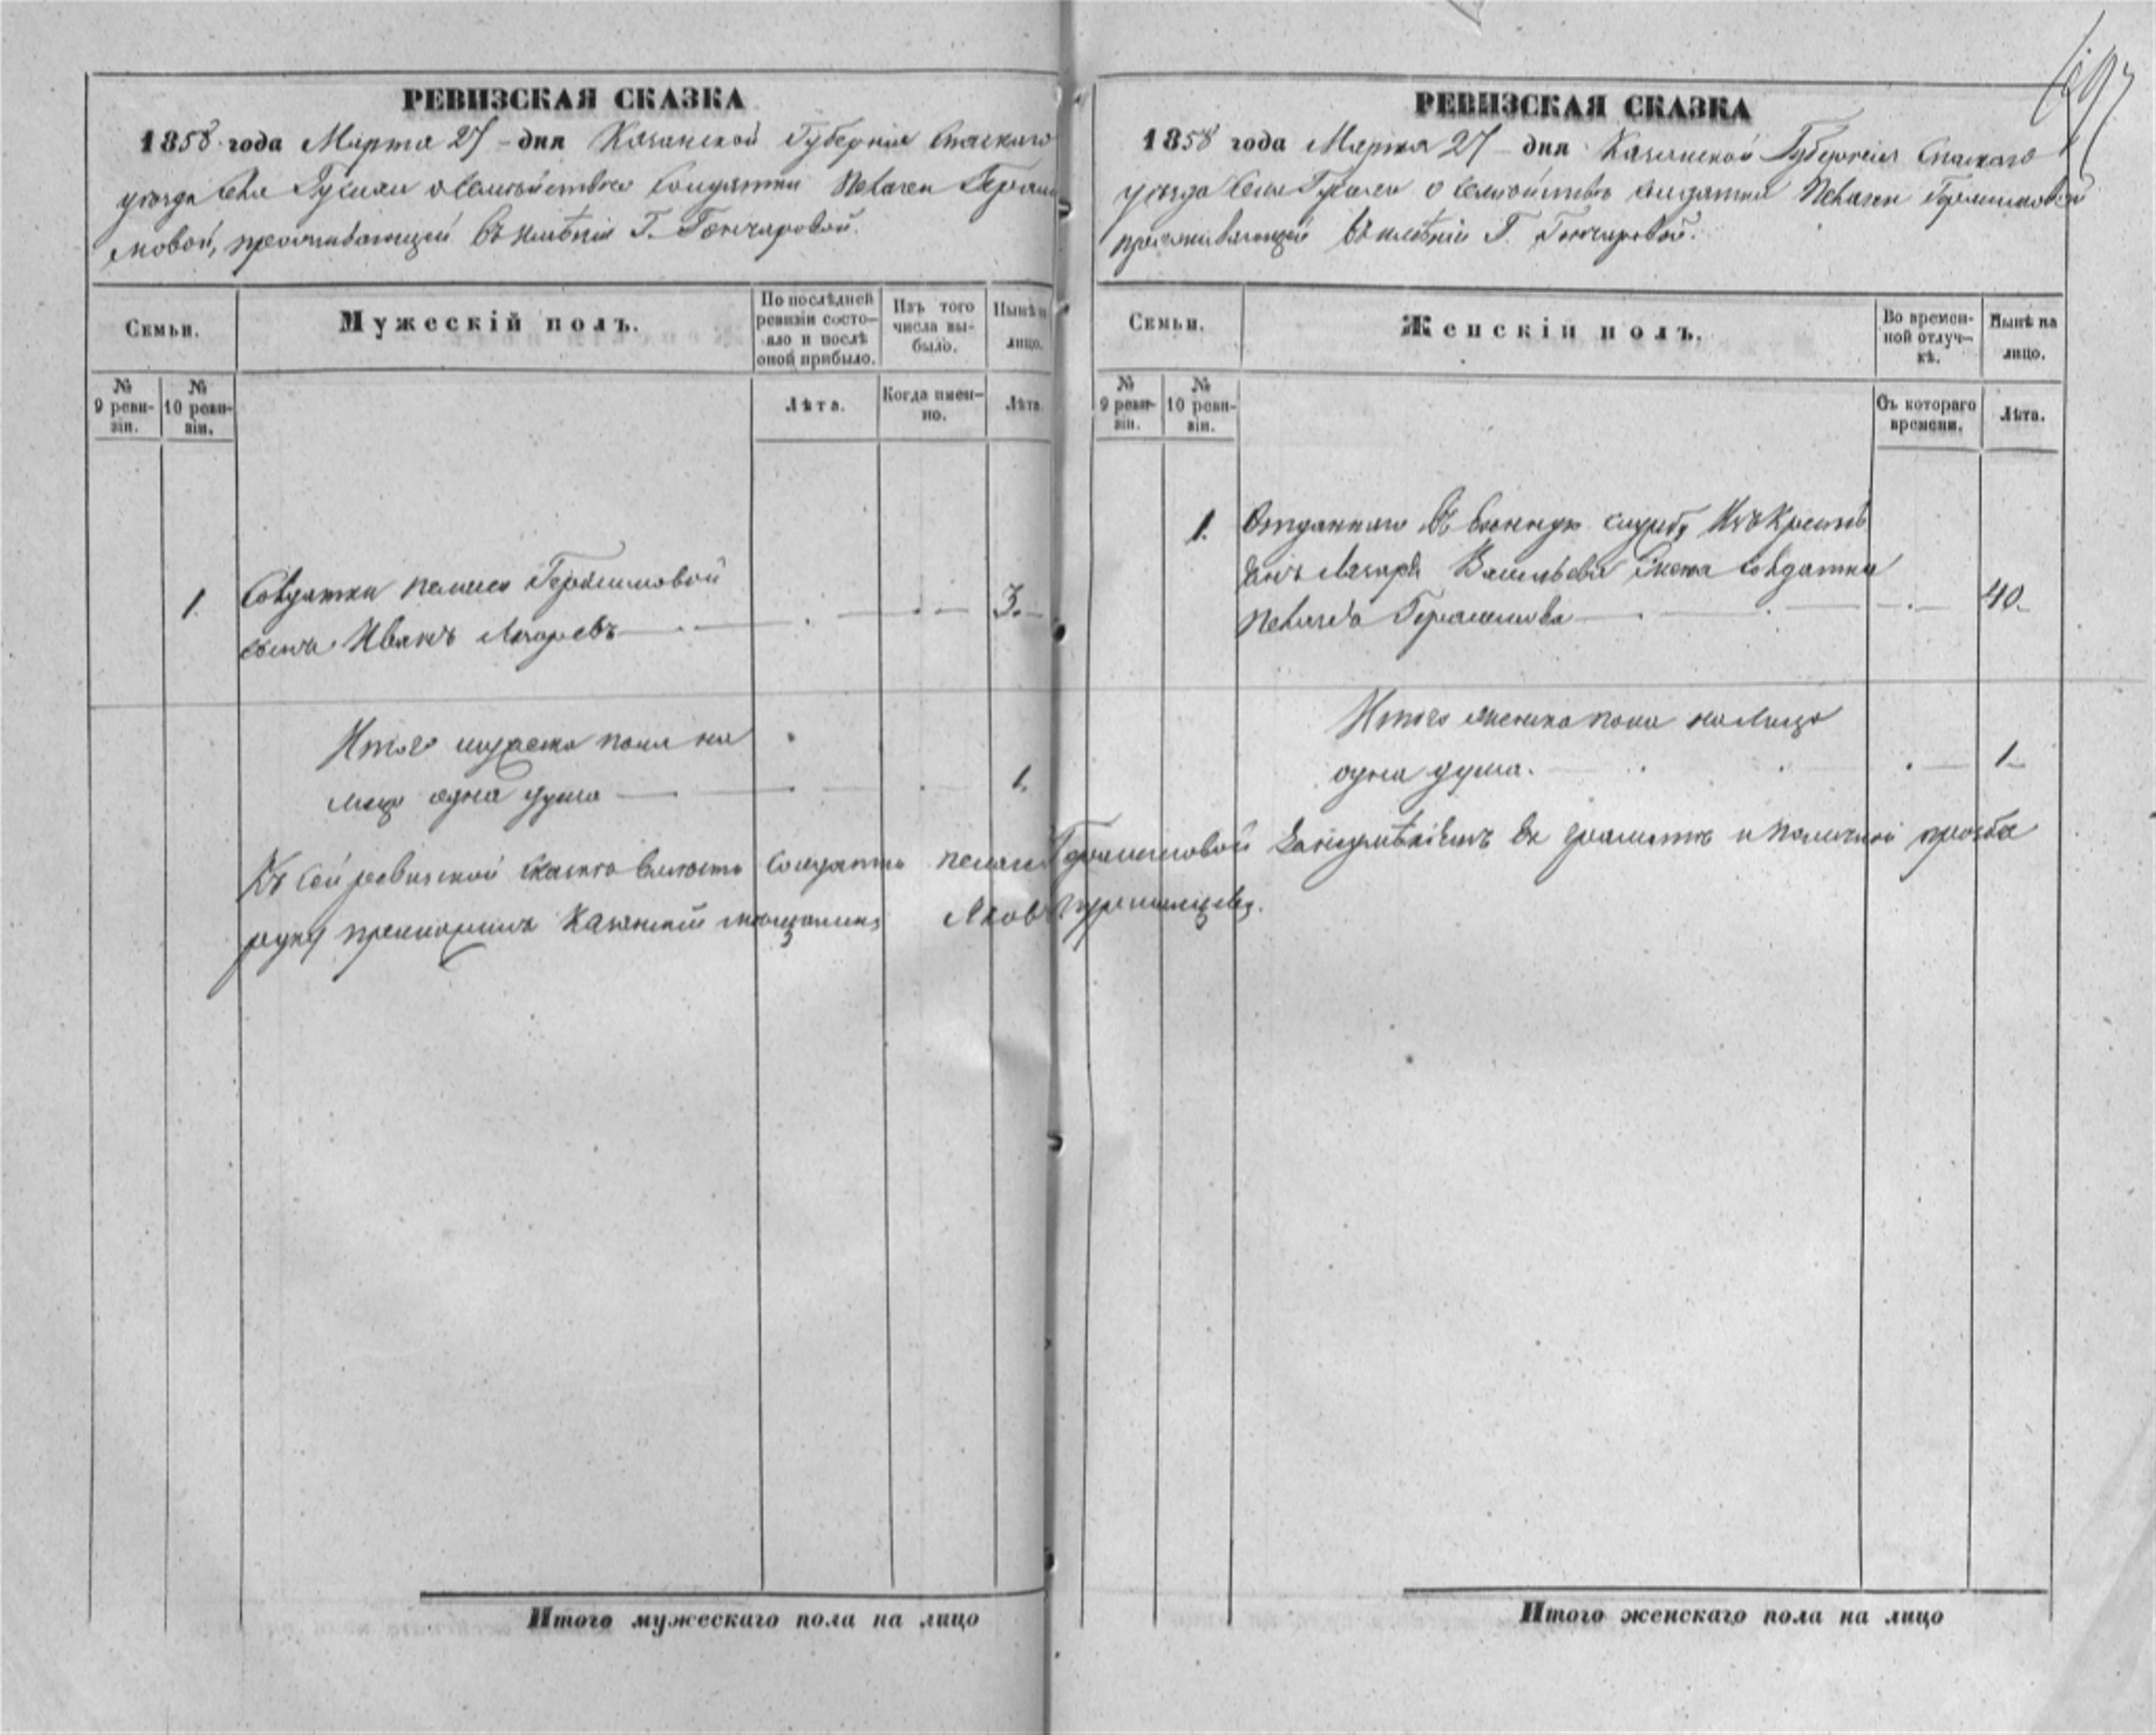 РЕВИЗСКАЯ СКАЗКА
1858 года Марта 27 - дня Казанской Губернiи Спаскаго
уѣзда Села о Семѣйствѣ Солдатки Пелагеи Гераси
мовой, проживающей въ имѣнiи Г. Гончаровой.
Семьи.
Мужескій полъ.
По послѣдней
ревизіи состо-
яло и послѣ
оной прибыло.
Изъ того
числа вы-
было.
Нынѣ н
лицо.
№
9 реви-
зіи.
№
10 реви-
зіи.
Лѣта.
Когда имен-
но.
Лѣта.
1. Солдатки Пелагеи Герасимовой
сынъ Иванъ Лазаревъ 3.
Итого мужеска пола на
лицо одна душа 1.
Къ сей ревизской сказкѣ вместо Солдатки Пелагеи Герасимовой за неумѣнiемъ ея грамотѣ и по личной прозбѣ
руку приложилъ Казанскiй мѣщанинъ Яковъ
Итого мужескаго пола на лицо
РЕВИЗСКАЯ СКАЗКА
1858 года Марта 27 - дня Казанской Губернiи Спаскаго
уѣзда Села о Семѣйствѣ Солдатки Пелагеи Герасимовой
проживающей въ имѣнiи Г. Гончаровой.
Семьи.
Женскій полъ.
Во времен-
ной отлуч-
кѣ.
Нынѣ на
лицо.
№
9 реви-
зіи.
№
10 реви-
зіи.
Съ котораго
времени.
Лѣта.
1. Отданнаго въ военную службу Изъ Кресть
янъ Лазаря Васильева жена Солдатка
Пелагея Герасимова 40.
Итого женска пола на Лицо
одна душа. 1
Итого женскаго пола на лицо